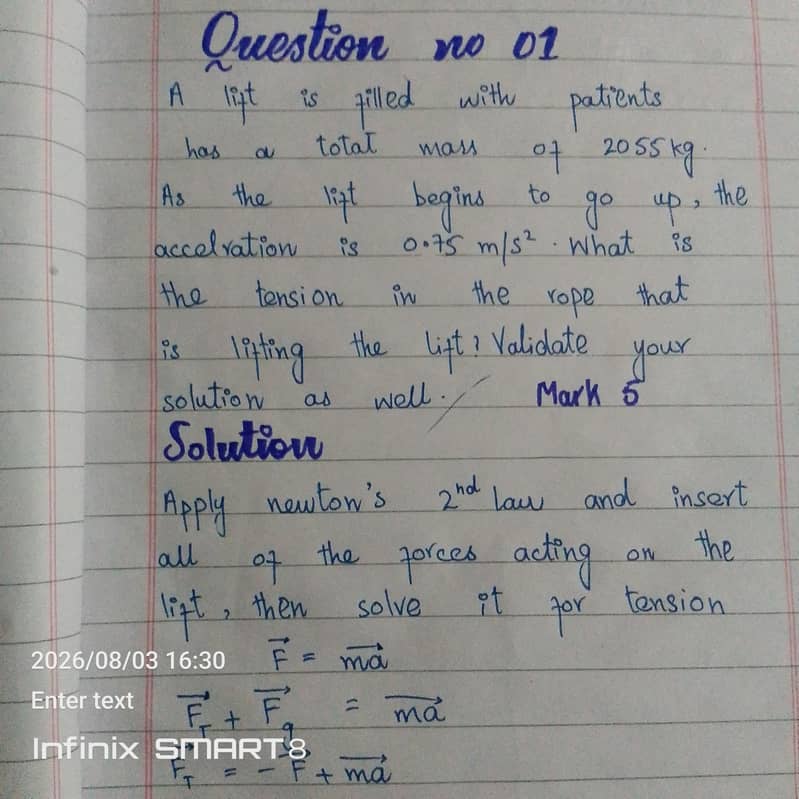 Question no 01
A lift is filled with patients
has a total mass of 2055 kg.
As the lift begins to go up, the
accelration is 0.75 m/s². What is
the tension in the rope that
is lifting the lift? Validate your
solution as well. Mark 5
Solution
Apply newton's 2nd law and insert
all of the forces acting on the
lift, then solve it for tension
F⃗ = ma⃗
F⃗_T + F⃗_g = ma⃗
F⃗_T = - F⃗ + ma⃗
2026/08/03 16:30
Enter text
Infinix SMART8